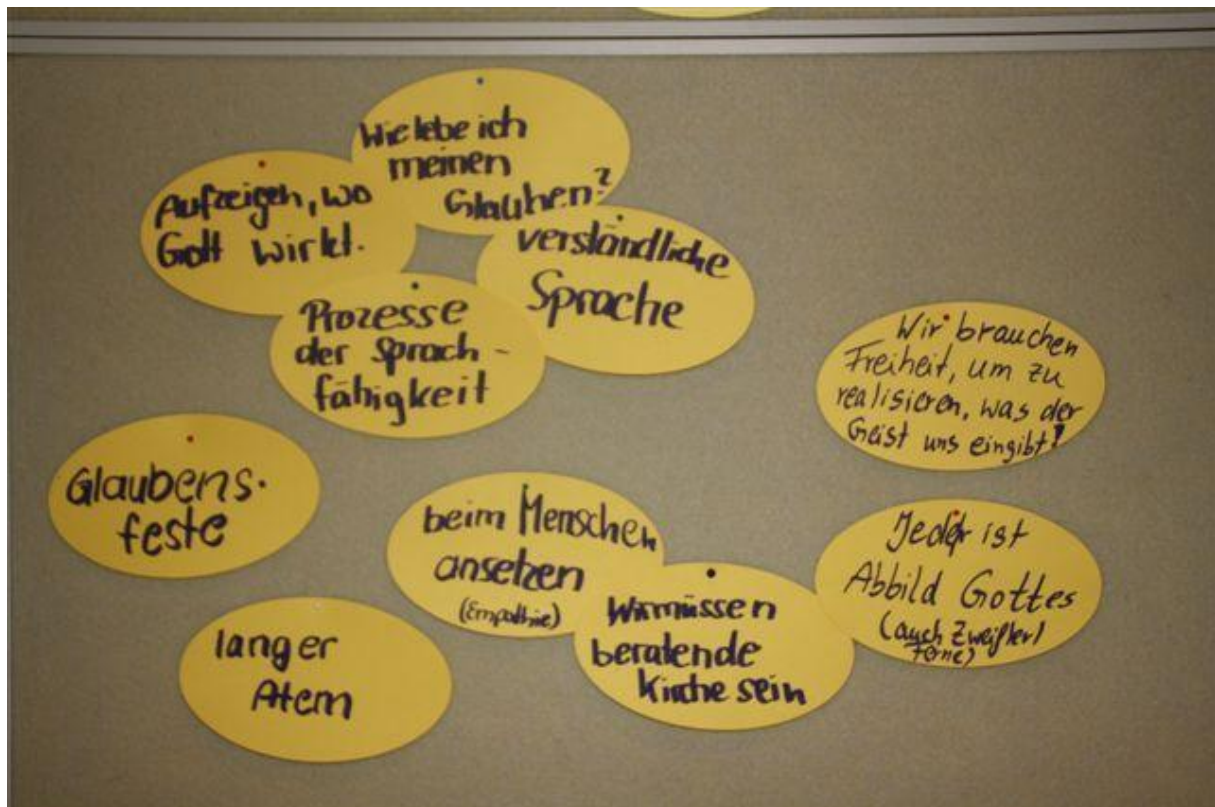 Wie lebe ich
meinen
Glauben?
Aufzeigen, wo
Gott wirkt.
verständliche
Sprache
Prozesse
der Sprach-
fähigkeit
Wir brauchen
Freiheit, um zu
realisieren, was der
Geist uns eingibt!
Glaubens-
feste
beim Menschen
ansetzen
(Empathie)
Jeder ist
Abbild Gottes
(auch Zweifler/
Ferne)
Wir müssen
beratende
Kirche sein
langer
Atem